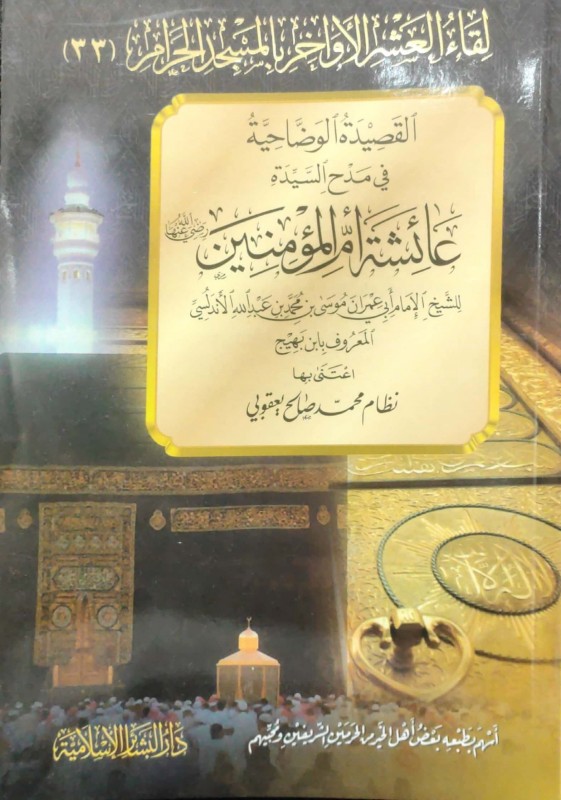 لِقَاءُ العَشْرِ الأَوَاخِرِ بِالمَسْجِدِ الحَرَامِ (٣٣)
القَصِيْدَةُ الوَضَّاحِيَّةُ
فِي مَدْحِ السَّيِّدَةِ
عَائِشَةَ أُمِّ المُؤْمِنِيْنَ رَضِيَ اللهُ عَنْهَا
لِلشَّيْخِ الإِمَامِ أَبِي عِمْرَانَ مُوسَى بْنِ مُحَمَّدِ بْنِ عَبْدِ اللهِ الأَنْدَلُسِيِّ
المَعْرُوفِ بِابْنِ بَهِيْج
اعْتَنَى بِهَا
نظام محمد صالح يعقوبي
أَسْهَمَ بِطَبْعِهِ بَعْضُ أَهْلِ الخَيْرِ مِنَ الحَرَمَيْنِ الشَّرِيفَيْنِ وَمُحِبِّيهِم
دَارُ البَشَائِرِ الإِسْلَامِيَّة